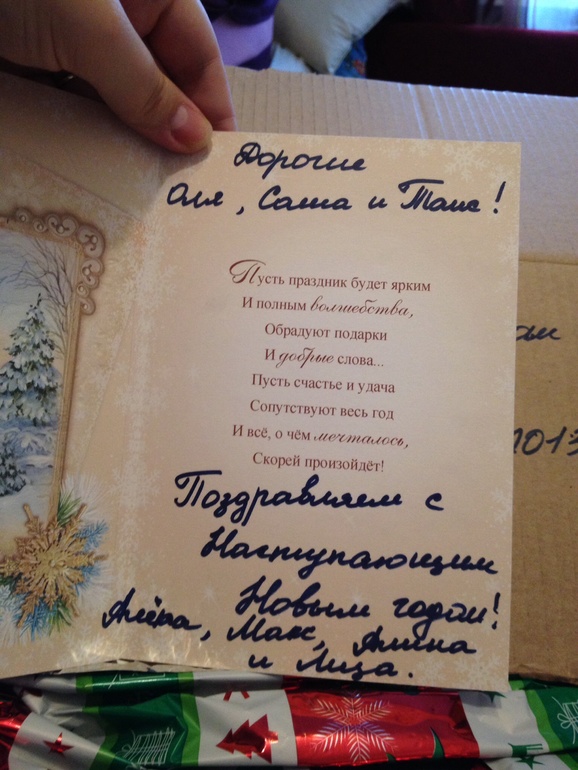 Дорогие
Оля, Саша и Таис!
Пусть праздник будет ярким
И полным волшебства,
Обрадуют подарки
И добрые слова...
Пусть счастье и удача
Сопутствуют весь год
И всё, о чём мечталось,
Скорей произойдёт!
Поздравляем с
Наступающим
Новым годом!
Алёра, Макс, Алина
и Лиза.
2013